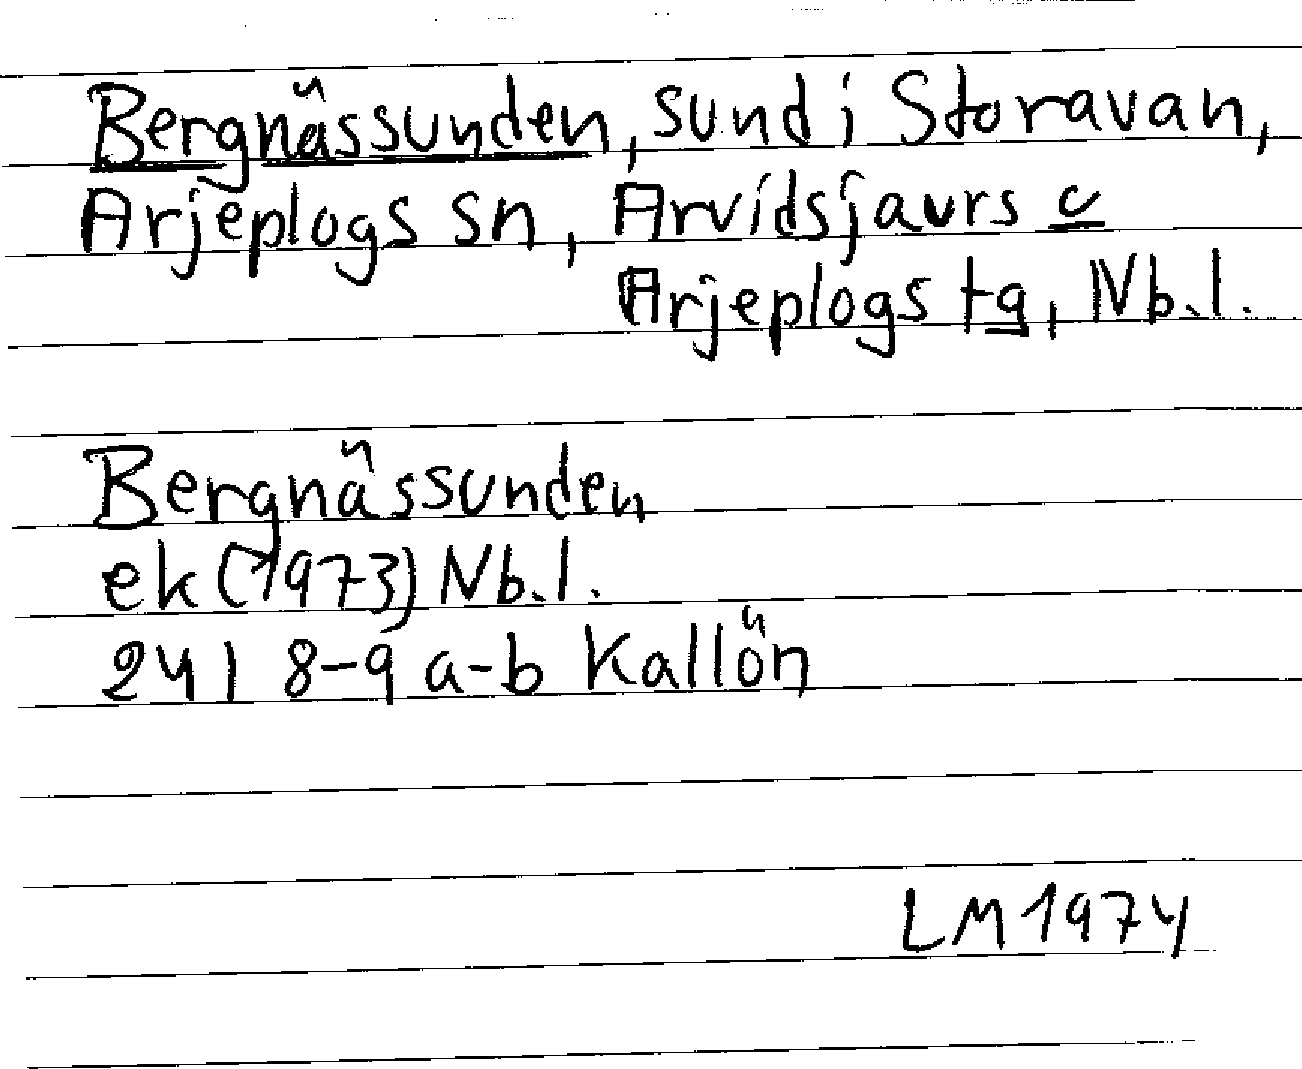 Bergnässunden, sund i Storavan,
Arjeplogs sn, Arvidsjaurs o
Arjeplogs tg, Nb.l.
Bergnässunden
ek (1973) Nb.l.
24 I 8-9 a-b Kallön
LM 1974